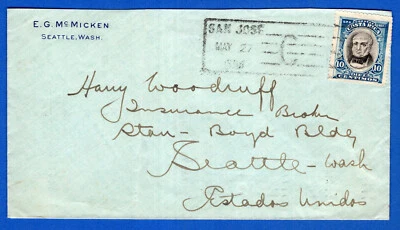 E. G. McMICKEN
SEATTLE, WASH.
SAN JOSE
MAY 27
C
COSTA RICA
10 10
CENTIMOS
Harry Woodruff
Insurance Broker
Starr-Boyd Bldg
Seattle-Wash
Estados Unidos